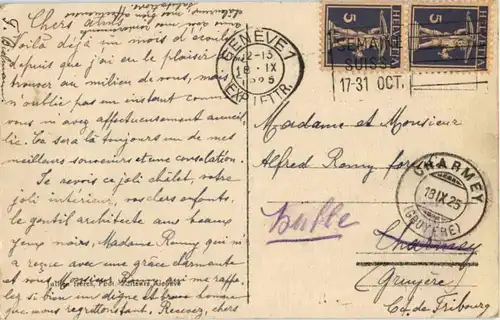 Chers amis
Voilà déjà un mois d'écoulé
depuis que j'ai eu le plaisir de
trouver au milieu de vous, mais
n'oublie pas en instant comme
vous m'avez affectueusement accueil-
lie. Ce sera là toujours un de mes
meilleurs souvenirs et une consolation.
Je revois ce joli châlet, votre
joli intérieur, vos chers enfants,
le gentil architecte aux beaux
yeux noirs. Madame Remy qui m'
a reçue avec une grâce charmante et
vous Monsieur Remy qui me rappe-
lez si bien un digne et brave homme
que nous regrettons tant. Recevez, chers
GENÈVE 1
12-13
18. IX
1925
EXP. LETTR.
HELVETIA
5
HELVETIA
5
SEMAINE
SUISSE
17-31 OCT.
Madame et Monsieur
Alfred Remy
CHARMEY
18 IX 25
(GRUYÈRE)
Bulle
Charmey
(Gruyère)
Ct. de Fribourg